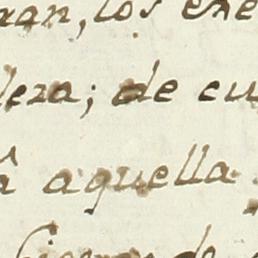 ran, los ene
leza; de cu
â aquella
de